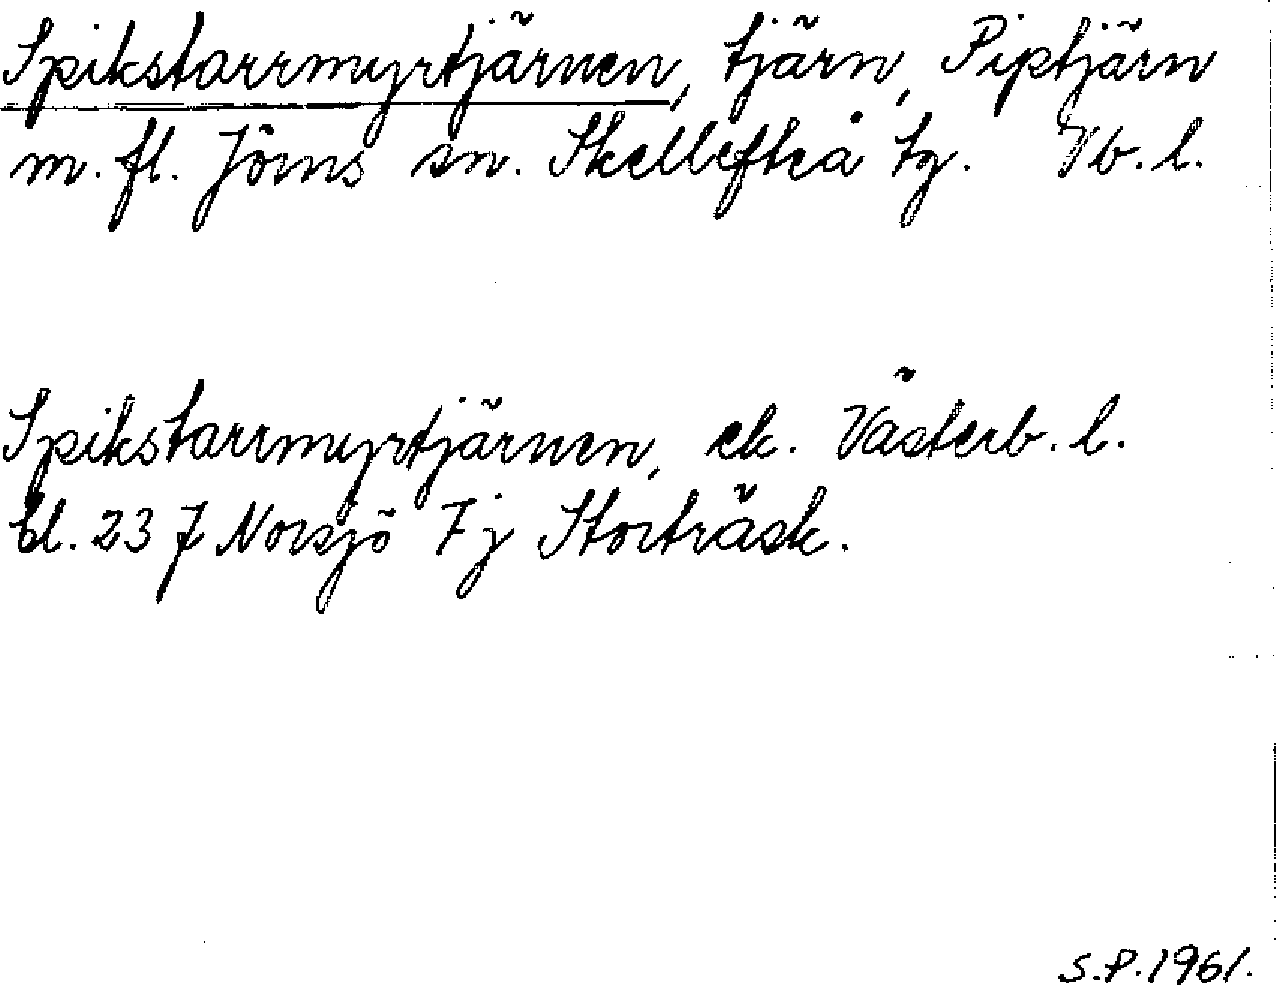 Spikstarrmyrtjärnen, tjärn, Piptjärn
m. fl. Jörns sn. Skellefteå tg. Vb. l.
Spikstarrmyrtjärnen, ek. Västerb. l.
bl. 23 J Norsjö 7 j Storträsk.
S.P. 1961.